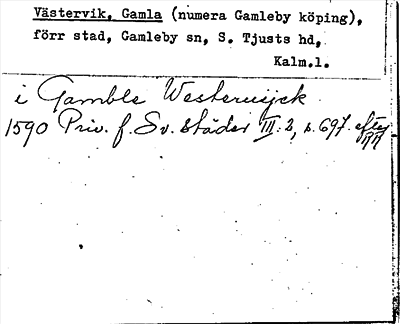 Västervik, Gamla (numera Gamleby köping),
förr stad, Gamleby sn, S. Tjusts hd,
Kalm.l.
i Gamble Westerwijck
1590 Priv. f. Sv. städer III:2, s. 697. efter
RR